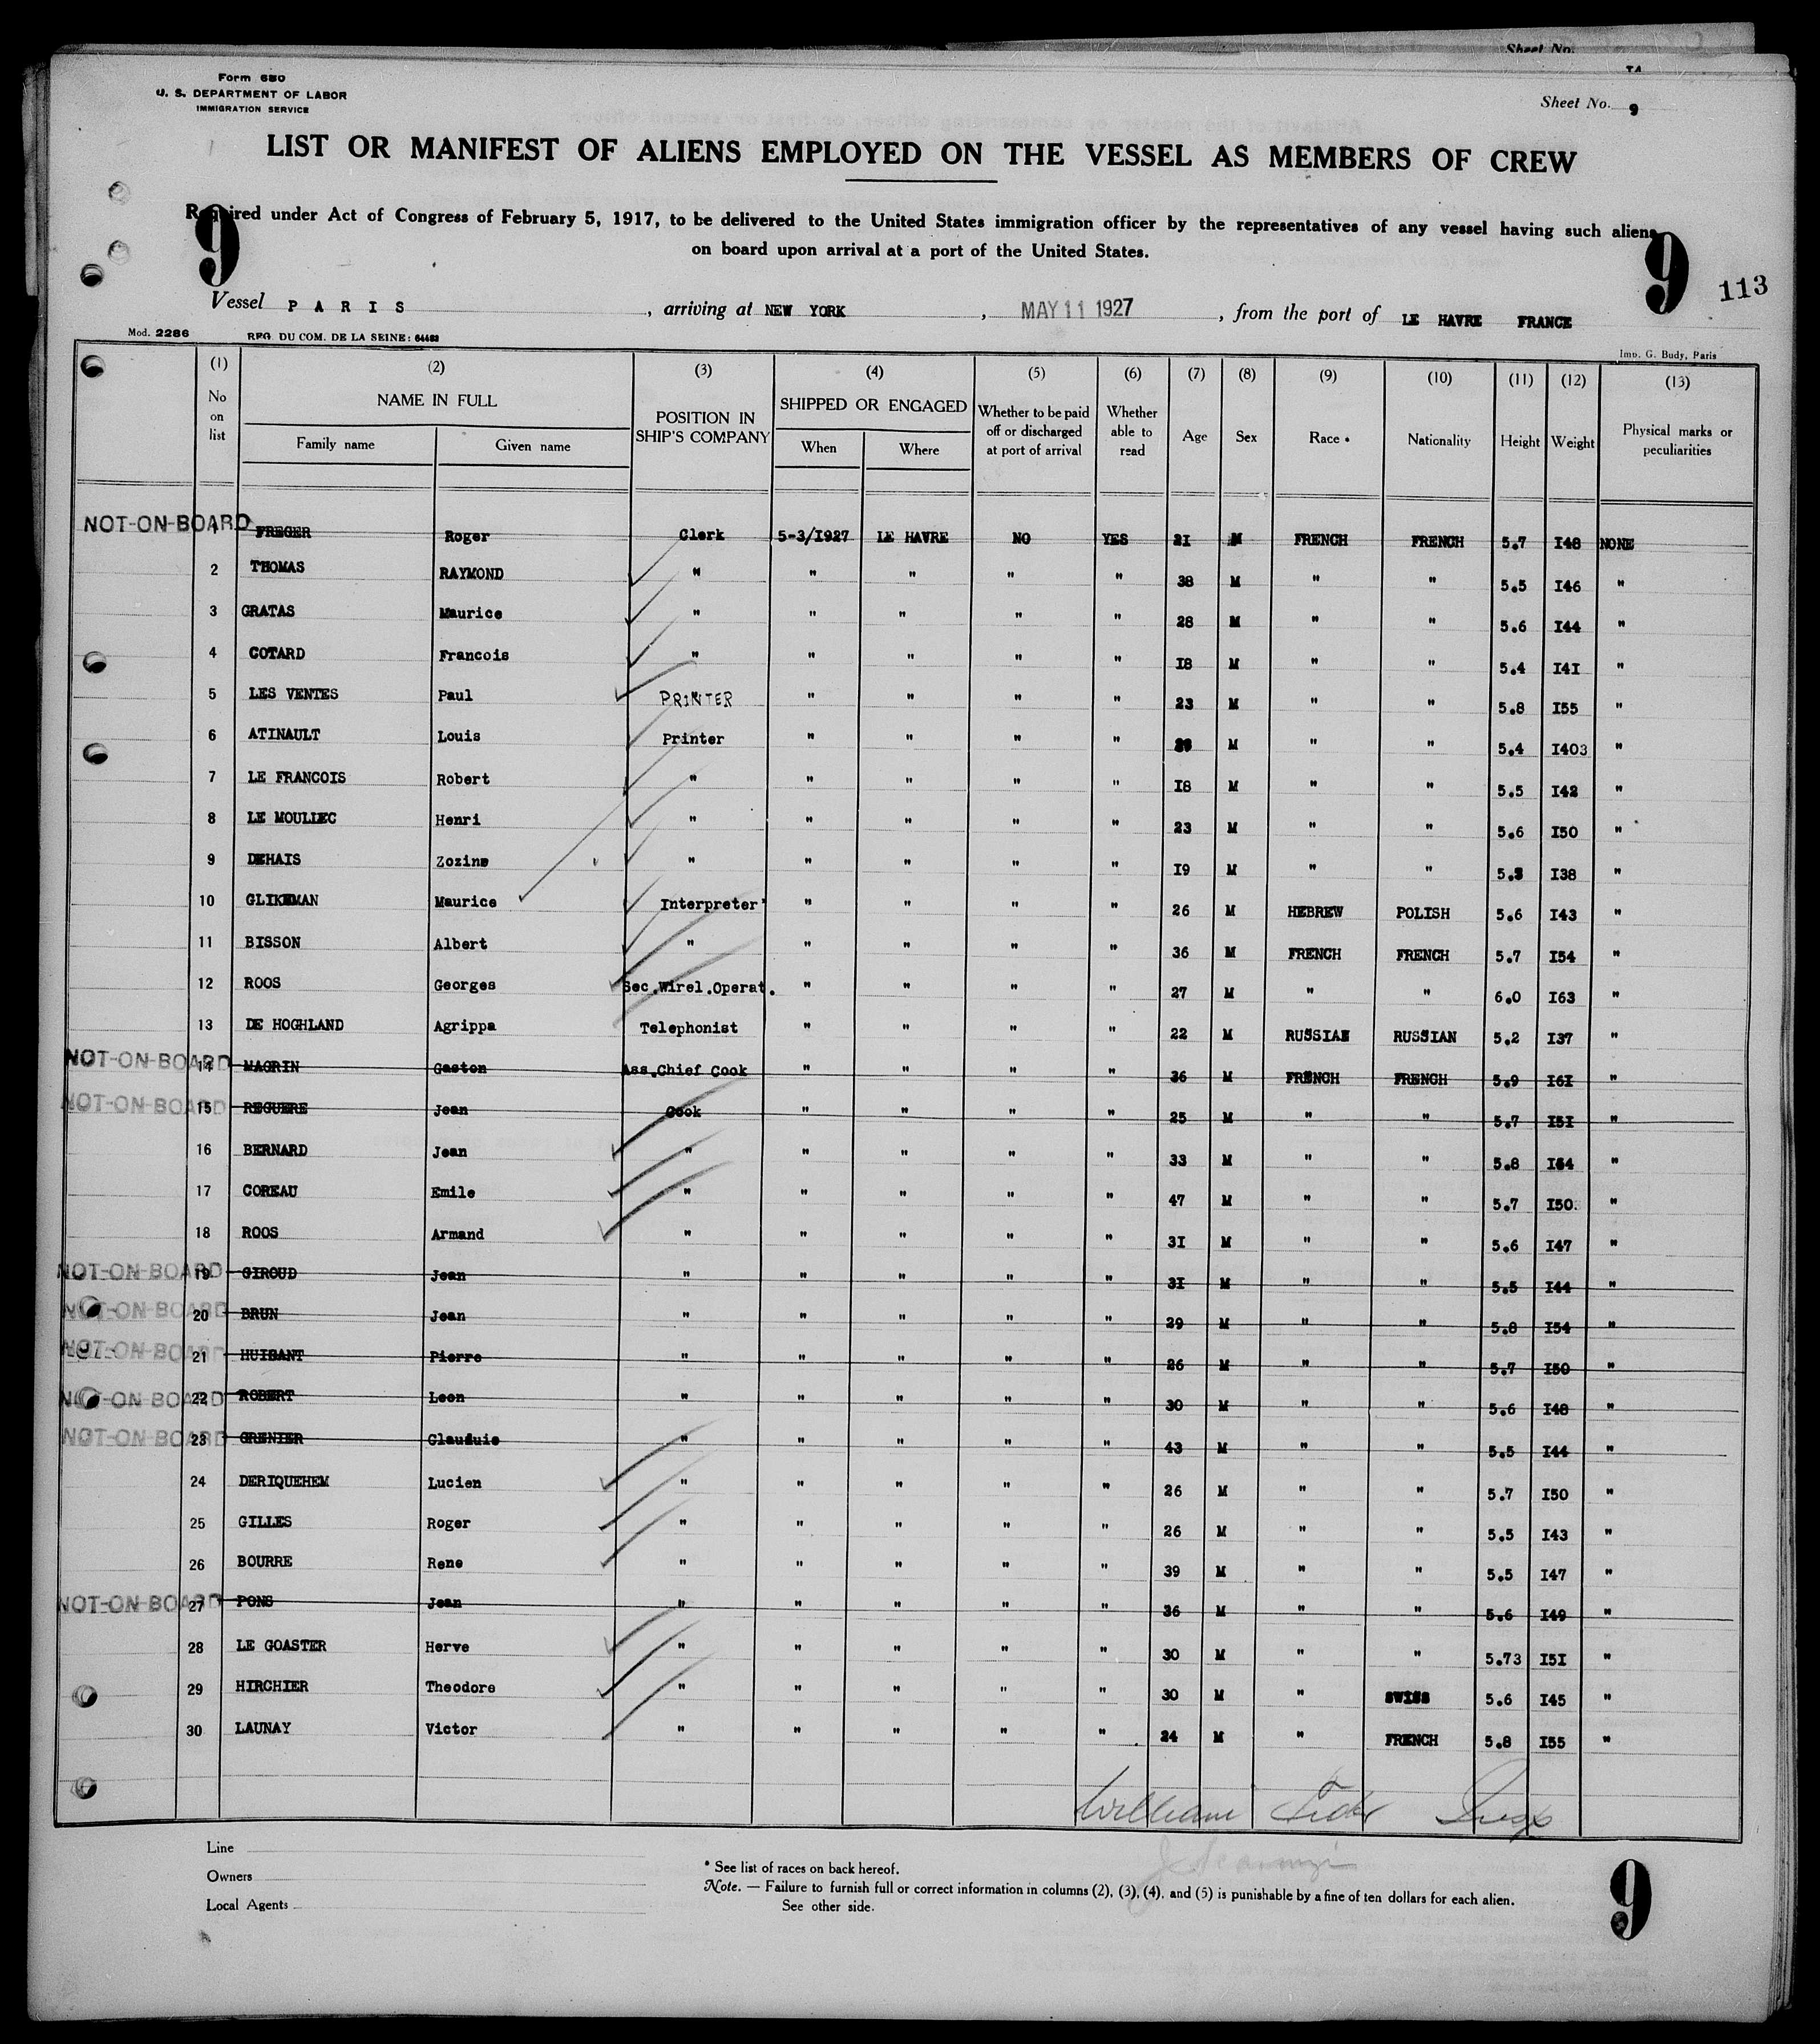 Sheet No.
Form 680
U. S. DEPARTMENT OF LABOR
IMMIGRATION SERVICE
Sheet No. 9
LIST OR MANIFEST OF ALIENS EMPLOYED ON THE VESSEL AS MEMBERS OF CREW
Required under Act of Congress of February 5, 1917, to be delivered to the United States immigration officer by the representatives of any vessel having such aliens
on board upon arrival at a port of the United States.
9 9 113
Vessel PARIS, arriving at NEW YORK, MAY 11 1927, from the port of LE HAVRE FRANCE
Mod. 2286 REG. DU COM. DE LA SEINE: 64483 Imp. G. Budy, Paris
(1) (2) (3) (4) (5) (6) (7) (8) (9) (10) (11) (12) (13)
No on list NAME IN FULL Family name Given name POSITION IN SHIP'S COMPANY SHIPPED OR ENGAGED When Where Whether to be paid off or discharged at port of arrival Whether able to read Age Sex Race * Nationality Height Weight Physical marks or peculiarities
NOT-ON-BOARD 1 FREGER Roger Clerk 5-3/1927 LE HAVRE NO YES 21 M FRENCH FRENCH 5.7 148 NONE
2 THOMAS RAYMOND " " " " " 38 M " " 5.5 146 "
3 GRATAS Maurice " " " " " 28 M " " 5.6 144 "
4 COTARD Francois " " " " " 18 M " " 5.4 141 "
5 LES VENTES Paul PRINTER " " " " 23 M " " 5.8 155 "
6 ATINAULT Louis Printer " " " " M " " 5.4 1403 "
7 LE FRANCOIS Robert " " " " " 18 M " " 5.5 142 "
8 LE MOULLEC Henri " " " " " 23 M " " 5.6 150 "
9 DEHAIS Zozine " " " " " 19 M " " 138 "
10 GLIKEMAN Maurice Interpreter " " " " 26 M HEBREW POLISH 5.6 143 "
11 BISSON Albert " " " " " 36 M FRENCH FRENCH 5.7 154 "
12 ROOS Georges Sec.Wirel.Operat. " " " " 27 M " " 6.0 163 "
13 DE HOGHLAND Agrippa Telephonist " " " " 22 M RUSSIAN RUSSIAN 5.2 137 "
NOT-ON-BOARD 14 MAGRIN Gaston Ass.Chief Cook " " " " 36 M FRENCH FRENCH 5.9 161 "
NOT-ON-BOARD 15 REGUERE Jean Cook " " " " 25 M " " 5.7 151 "
16 BERNARD Jean " " " " " 33 M " " 5.8 164 "
17 COREAU Emile " " " " " 47 M " " 5.7 150 "
18 ROOS Armand " " " " " 31 M " " 5.6 147 "
NOT-ON-BOARD 19 GIROUD Jean " " " " " 31 M " " 5.5 144 "
NOT-ON-BOARD 20 BRUN Jean " " " " " 29 M " " 5.8 154 "
NOT-ON-BOARD 21 HUISANT Pierre " " " " " 26 M " " 5.7 150 "
NOT-ON-BOARD 22 ROBERT Leon " " " " " 30 M " " 5.6 148 "
NOT-ON-BOARD 23 GRENIER Clauduis " " " " " 43 M " " 5.5 144 "
24 DERIQUEHEM Lucien " " " " " 26 M " " 5.7 150 "
25 GILLES Roger " " " " " 26 M " " 5.5 143 "
26 BOURRE Rene " " " " " 39 M " " 5.5 147 "
NOT-ON-BOARD 27 PONS Jean " " " " " 36 M " " 5.6 149 "
28 LE GOASTER Herve " " " " " 30 M " " 5.73 151 "
29 HIRCHIER Theodore " " " " " 30 M " SWISS 5.6 145 "
30 LAUNAY Victor " " " " " 24 M " FRENCH 5.8 155 "
William
Line
Owners
Local Agents
* See list of races on back hereof.
Note. — Failure to furnish full or correct information in columns (2), (3), (4), and (5) is punishable by a fine of ten dollars for each alien.
See other side.
9